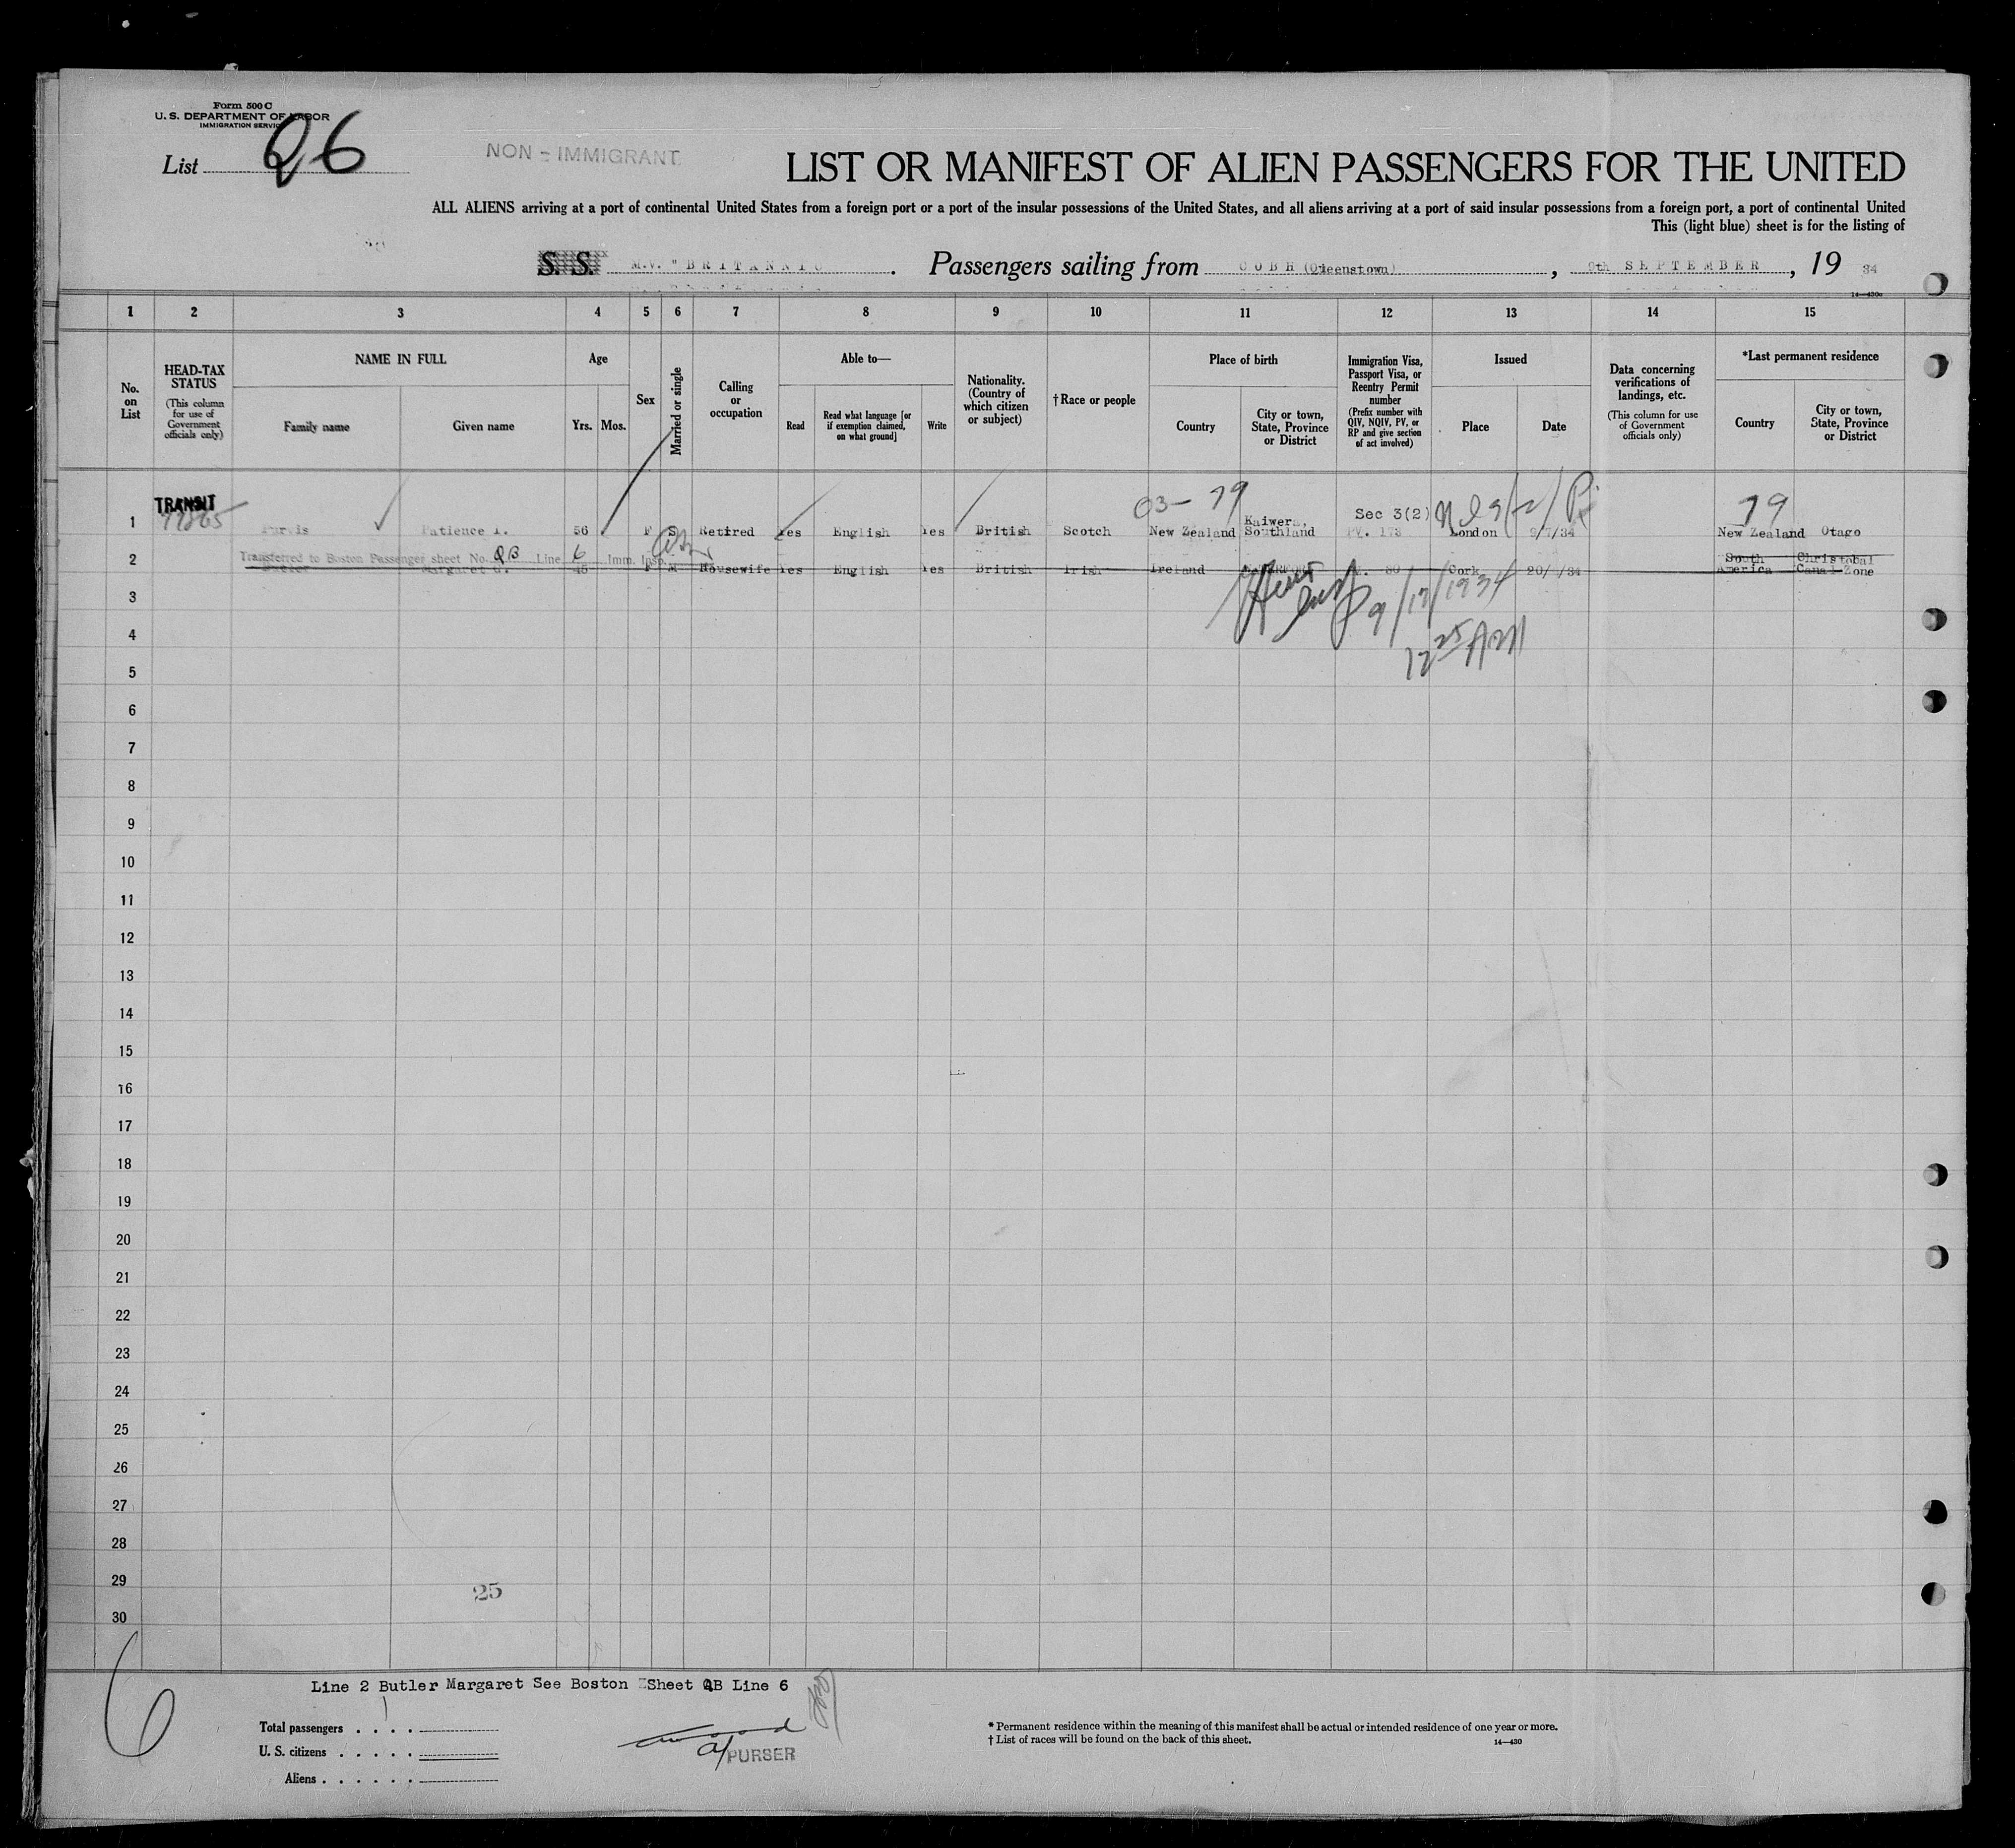 Form 500 C
U. S. DEPARTMENT OF LABOR
IMMIGRATION SERVICE
List 26
NON - IMMIGRANT
LIST OR MANIFEST OF ALIEN PASSENGERS FOR THE UNITED
ALL ALIENS arriving at a port of continental United States from a foreign port or a port of the insular possessions of the United States, and all aliens arriving at a port of said insular possessions from a foreign port, a port of continental United
This (light blue) sheet is for the listing of
S. S. M.V. "BRITANNIC . Passengers sailing from COBH (Queenstown) , 9th SEPTEMBER , 19 34
14—430c
1 2 3 4 5 6 7 8 9 10 11 12 13 14 15
No. on List
HEAD-TAX STATUS (This column for use of Government officials only)
NAME IN FULL
Family name Given name
Age
Yrs. Mos.
Sex
Married or single
Calling or occupation
Able to—
Read Read what language [or if exemption claimed, on what ground] Write
Nationality. (Country of which citizen or subject)
†Race or people
Place of birth
Country City or town, State, Province or District
Immigration Visa, Passport Visa, or Reentry Permit number (Prefix number with QIV, NQIV, PV, or RP and give section of act involved)
Issued
Place Date
Data concerning verifications of landings, etc. (This column for use of Government officials only)
*Last permanent residence
Country City or town, State, Province or District
TRANSIT 03— 79 Sec 3(2) 79
1 Purvis Patience I. 56 F S Retired Yes English Yes British Scotch New Zealand Kaiwera, Southland PV. 173 London 9/7/34 New Zealand Otago
Transferred to Boston Passenger sheet No. QB Line 6 Imm. Insp.
2 Butler Margaret 45 F M Housewife Yes English Yes British Irish Ireland 30 Cork 20/ /34 South America Christobal Canal Zone
3
9/17/1934
4
12 25 AM
5
6
7
8
9
10
11
12
13
14
15
16
17
18
19
20
21
22
23
24
25
26
27
28
29
25
30
6
Line 2 Butler Margaret See Boston Sheet QB Line 6
Total passengers . . . .
U. S. citizens . . . . .
Aliens . . . . . .
PURSER
* Permanent residence within the meaning of this manifest shall be actual or intended residence of one year or more.
† List of races will be found on the back of this sheet.
14—430